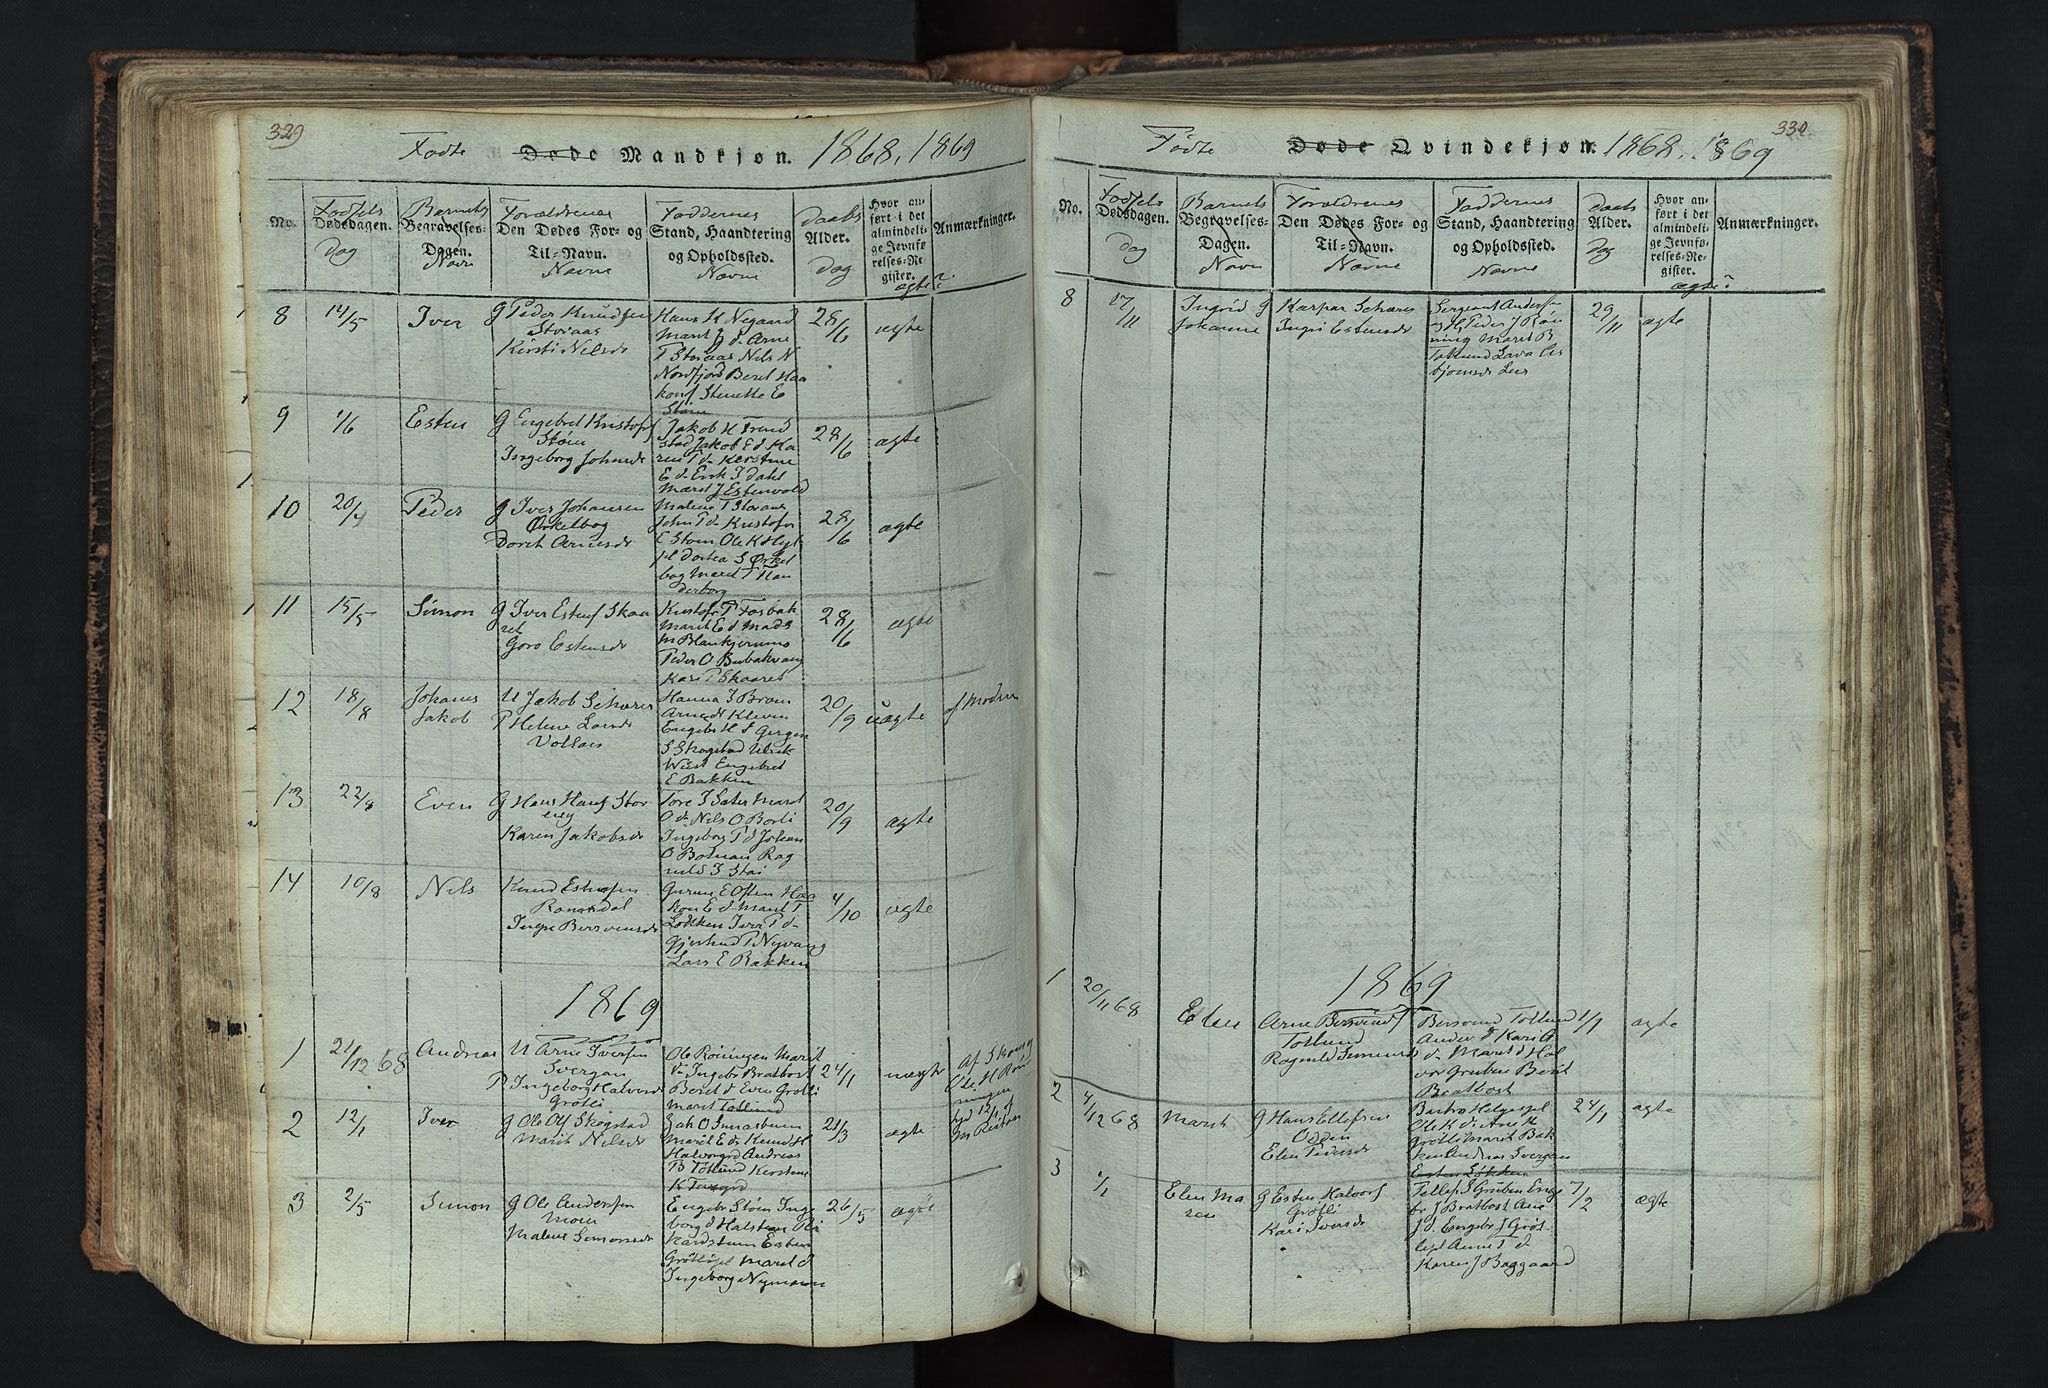 329
Fødte Døde Mandkjøn. 1868, 1869
No.
Fødsels
Dødsdagen.
Dag
Barnets
Begravelses-
Dagen.
Navn
Forældrenes
Den Dødes For- og
Til-Navn.
Navne
Faddernes
Stand, Haandtering
og Opholdssted.
Navne
Daabs
Alder.
Dag
Hvor an-
ført i det
almindeli-
ge Jevnfø-
relses-Re-
gister.
ægte?
Anmærkninger.
8 14/5 Iver G Peder Knudsen
Storaas
Kirsti Nilsdr
Hans K Negaard
Marit J d. Arne
T Storaas Nils N
Nordfjord Beret Haa
kons Stenette E
Støen
28/6 ægte
9 1/6 Esten G Engebret Kristofs
Støen
Ingeborg Johnsdr
Jakob H Trond
stad Jakob E d Ka
ren T d Kerstine
E d. Erik I dahl
Marit J Estenvold
28/6 ægte
10 20/4 Peder G Iver Johansen
Ørkelbog
Dorit Arnesdr
Malene T Storaas
John T d Kristofr
E Støen Ole K
H Dortea S Ørkel
bog Marit T Kan
derborg
28/6 ægte
11 15/5 Simon G Iver Estens Skaa
ret
Goro Estensdr
Kristofr T Fosbak
Marit E d Mads
M Blankgerums
Peder O Bubakvang
Kari P Skaaret
28/6 ægte
12 18/8 Johanes
Jakob
U Jakob Schæres
P Helene Larsdr
Voltaes
Hanna J Broen
Arne d Kleven
Engebr H S Gergen
S Skogstad Ulrik
Wiist Engebret
E Bakken
20/9 uægte af Modren
13 22/8 Even G Hans Hans Stor
eng
Karen Jakobsdr
Tore J Sæter Marit
O d. Nils O Borli
Ingeborg T d Johan
O Botman Rag
nild J Stai
20/9 ægte
14 10/8 Nils Knud Estensen
Ramsdal
Ingri Bersvensdr
Guruni E Osten Haa
kon E d Marit T
Løkken Iver P d
Gjertrud P Nyvang
Lars E Bakken
4/10 ægte
1869
1 21/12 68 Andreas U Arne Iversen
Svergan
P Ingeborg Halvorsdr
Grøtli
Ole Røningen Marit
d. Ingebr Bratbost
Beret d Even Grøtli
Marit Tøtlund
24/1 uægte Af
Ole H Røn
ningen
2 12/1 Iver G Ole Ols Skogstad
Marit Nilsdr
Jak O
Marit E d Knud H
Halvorsgrd Andreas
B Tøtlund Kerstine
K
21/3 ægte
3 2/5 Simon G Ole Andersen
Moen
Malene Simonsdr
Engebr Støen Inge
borg d Halsten Ri
kardstuen Esten
Grøtlipl Marit d
Ingeborg Nymann
26/5 ægte
330
Fødte Døde Qvindekjøn. 1868, 1869
No.
Fødsels
Dødsdagen.
Dag
Barnets
Begravelses-
Dagen.
Navn
Forældrenes
Den Dødes For- og
Til-Navn.
Navne
Faddernes
Stand, Haandtering
og Opholdssted.
Navne
Daabs
Alder.
Dag
Hvor an-
ført i det
almindeli-
ge Jevnfø-
relses-Re-
gister.
ægte?
Anmærkninger.
8 17/11 Ingrid
Johanne
G Kaspar Schæres
Ingri Estensdr
Sergeant Anders
H Peder J Røn
ning Marit B
Tøtlund Lava As
bjørnsdr Lees
29/11 ægte
1869
1 20/11 68 Elen Arne Bersvends
Tøtlund
Ragnild Simensdr
Bersvend Tøtlund
Ander d Kari O
d. Marit d Hal
vor Gruben Berit
Bratbost
1/1 ægte
2 4/12 68 Marit G Hans Ellefsen
Odden
Elen Pedersdr
Barbro Helgespl
Ole K d. Ane H
Grøtli Marit Bak
ken Andreas Svergan
Esten Løkken
24/1 ægte
3 1/1 Elen Ma
ren
G Esten Halvors
Grøtli
Kari Iversdr
Tellef S Gruben Enge
br J Bratbost Ane
J d. Engebr J Grøt
lipl Arne T d
Karen J Baggaard
7/2 ægte